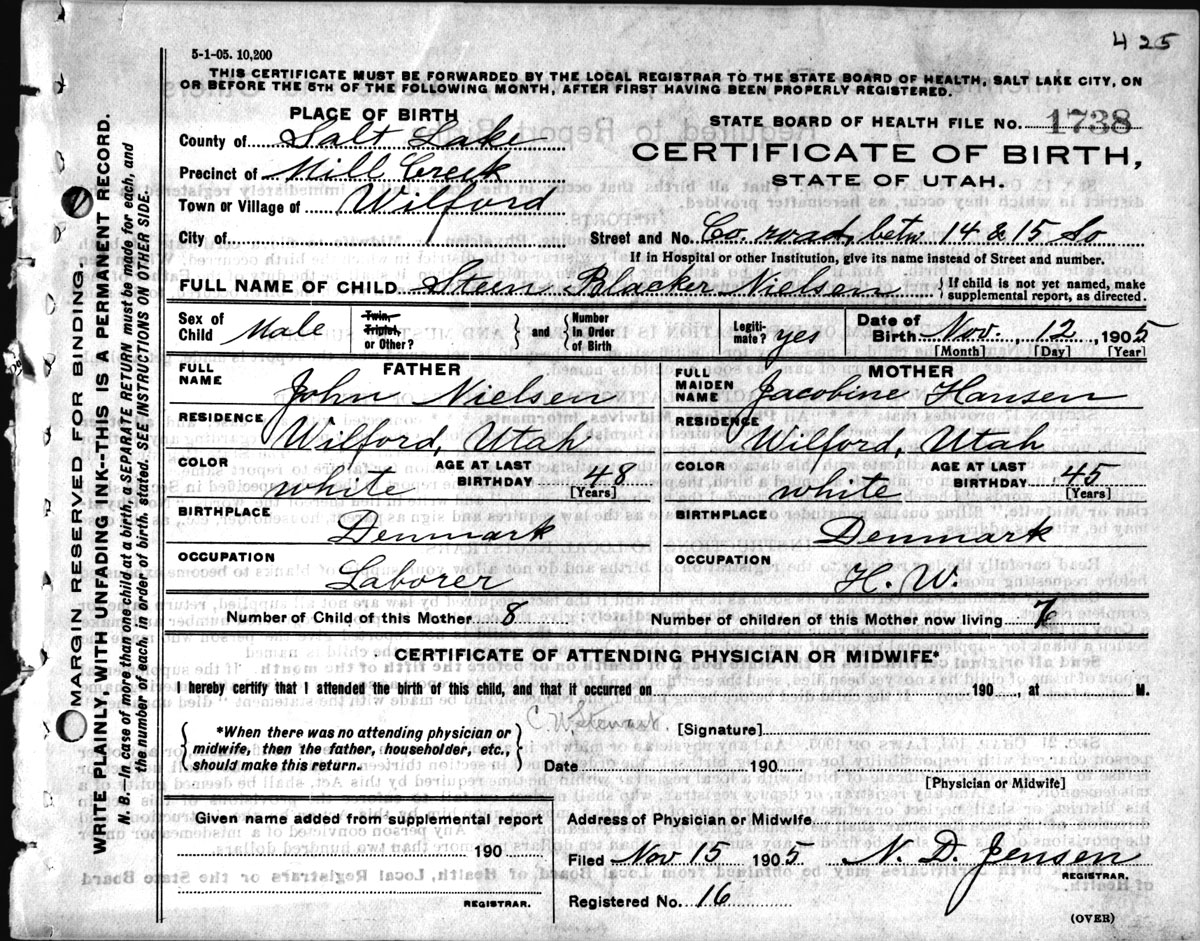 425
5-1-05. 10,200
THIS CERTIFICATE MUST BE FORWARDED BY THE LOCAL REGISTRAR TO THE STATE BOARD OF HEALTH, SALT LAKE CITY, ON
OR BEFORE THE 5TH OF THE FOLLOWING MONTH, AFTER FIRST HAVING BEEN PROPERLY REGISTERED.
PLACE OF BIRTH
County of Salt Lake
Precinct of Mill Creek
Town or Village of Wilford
City of
STATE BOARD OF HEALTH FILE NO. 1738
CERTIFICATE OF BIRTH,
STATE OF UTAH.
Street and No. Co road, betw 14 & 15 So
If in Hospital or other Institution, give its name instead of Street and number.
FULL NAME OF CHILD Steen Blacker Nielsen { If child is not yet named, make supplemental report, as directed.
Sex of Child Male Twin, Triplet, or Other? } and { Number in Order of Birth Legiti-mate? yes Date of Birth Nov. 12, 1905
[Month] [Day] [Year]
FATHER
FULL NAME John Nielsen
RESIDENCE Wilford, Utah
COLOR white AGE AT LAST BIRTHDAY 48 [Years]
BIRTHPLACE Denmark
OCCUPATION Laborer
MOTHER
FULL MAIDEN NAME Jacobine Hansen
RESIDENCE Wilford, Utah
COLOR white AGE AT LAST BIRTHDAY 45 [Years]
BIRTHPLACE Denmark
OCCUPATION H. W.
Number of Child of this Mother 8 Number of children of this Mother now living
CERTIFICATE OF ATTENDING PHYSICIAN OR MIDWIFE*
I hereby certify that I attended the birth of this child, and that it occurred on 190 , at M.
{ *When there was no attending physician or
midwife, then the father, householder, etc.,
should make this return. }
C. W. Stewart. [Signature]
Date 190
[Physician or Midwife]
Given name added from supplemental report
190
REGISTRAR.
Address of Physician or Midwife
Filed Nov 15 1905 N. D. Jensen
REGISTRAR.
Registered No. 16
(OVER)
MARGIN RESERVED FOR BINDING.
WRITE PLAINLY, WITH UNFADING INK--THIS IS A PERMANENT RECORD.
N. B.--In case of more than one child at a birth, a SEPARATE RETURN must be made for each, and
the number of each, in order of birth, stated. SEE INSTRUCTIONS ON OTHER SIDE.